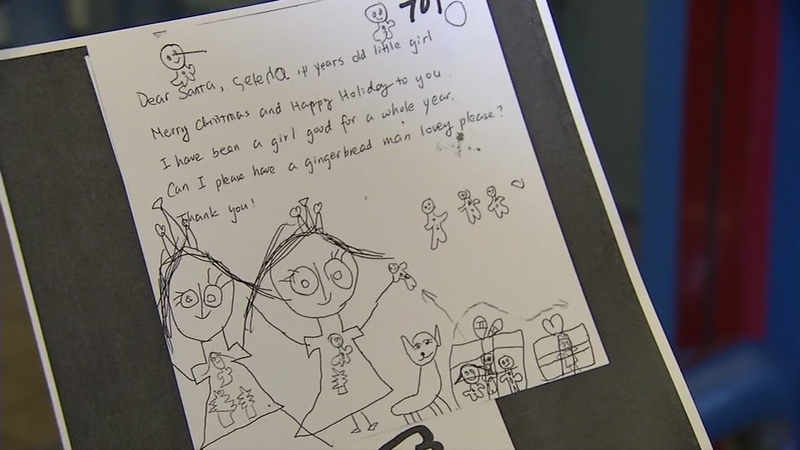 701
Dear Santa, Selena, 4 years old little girl
Merry Christmas and Happy Holiday to you.
I have been a girl good for a whole year.
Can I please have a gingerbread man lovey please?
Thank you!